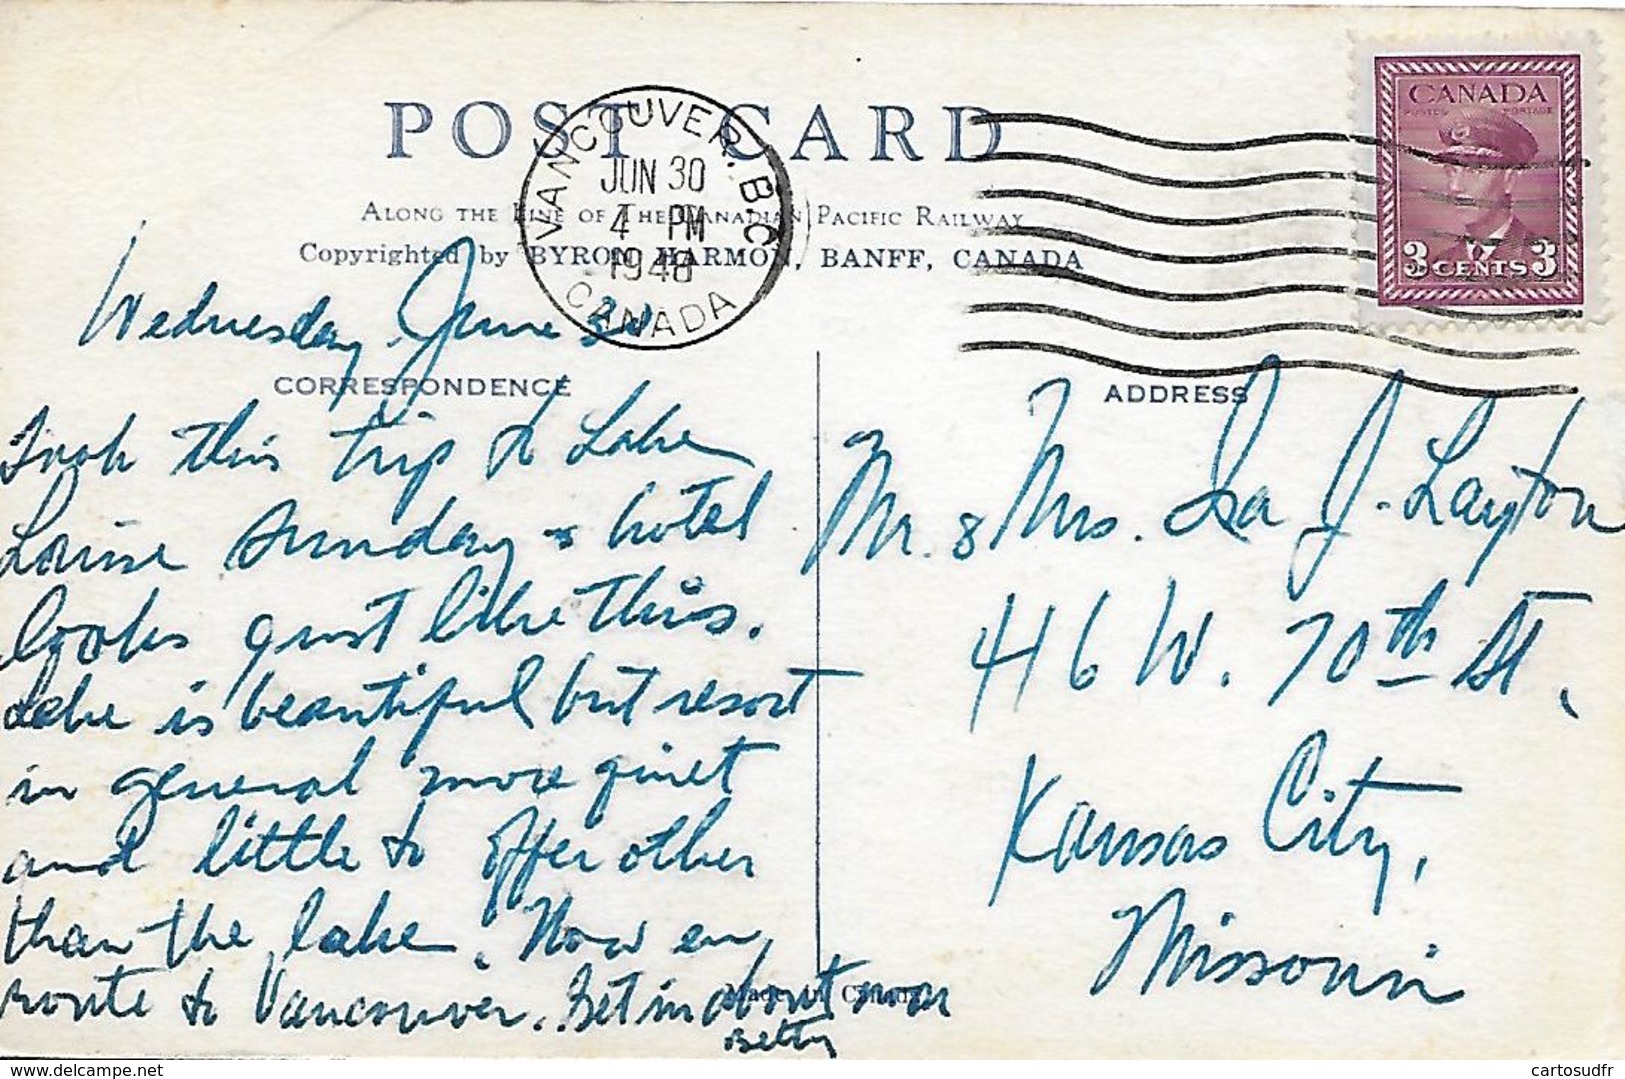 POST CARD
ALONG THE LINE OF THE CANADIAN PACIFIC RAILWAY
Copyrighted by BYRON HARMON, BANFF, CANADA
VANCOUVER. B.C.
JUN 30
4 PM
1948
CANADA
CANADA
POSTES POSTAGE
3 CENTS 3
Wednesday June 30
CORRESPONDENCE
Took this trip to Lake
Louise Sunday & hotel
looks just like this.
Lake is beautiful but resort
in general more quiet
and little to offer other
than the lake. Now en
route to Vancouver. Get in about noon
Betty
ADDRESS
Mr. & Mrs. Ira J. Layton
416 W. 70th St.,
Kansas City,
Missouri
Made in Canada
www.delcampe.net
cartosudfr